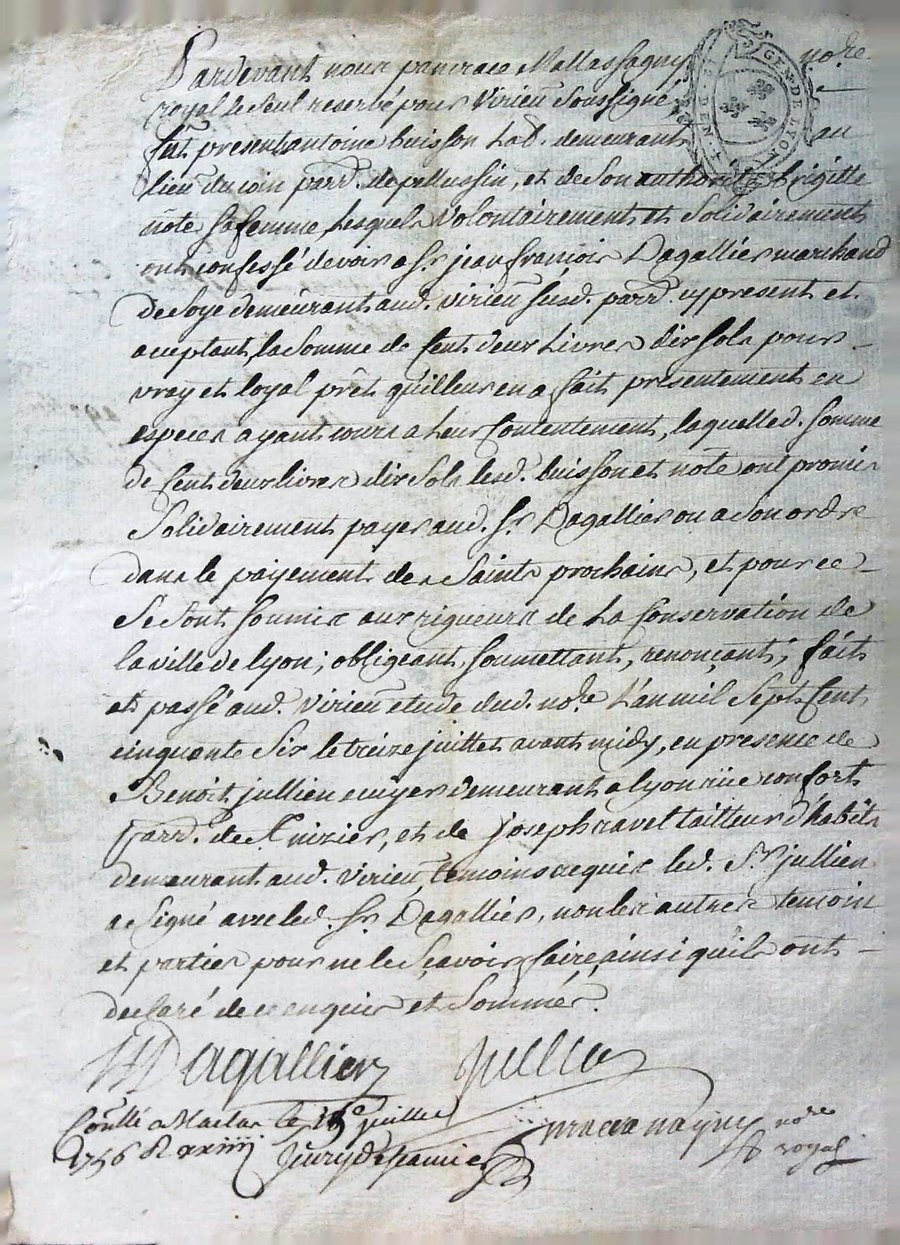 Pardevant nous pancrace Mallassagny no.re
royal le seul reservé pour Virieu soussigné
fut present antoine buisson hab. demeurant au
lieu du coin parr. de pellussin, et de son authorité brigitte
note sa femme lesquels volontairement et solidairement
ont confessé devoir a Sr. jean françois Dagallier marchand
de soye demeurant aud. virieu susd. parr. cy present et
aceptant, la somme de cent deux Livres dix sols pour
vray et loyal prêt qu'illeur en a fait presentement en
especes ayant cours a leur contentement, laquelled. somme
de cent deux livres dix sols lesd. buisson et note ont promis
solidairement payer aud. Sr. Dagallier ou a son ordre
dans le payement des saints prochains, et pour ce
se sont soumis aux rigueurs de la Conservation de
la ville de lyon; obligeant, soumettant, renonçant; fait
et passé aud. virieu etude dud. no.re L'an mil sept cent
cinquante six le treize juillet avant midy, en presence de
Benoit jullien ecuyer demeurant a lyon rüe confort
parr. de St. nizier, et de joseph ravel tailleur d'habits
demeurant aud. virieu, temoins requis led. Sr. jullien
a signé avec led. Sr. Dagallier, non les autres temoins
et parties pour ne le sçavoir faire ainsi qu'ils ont
declaré de ce enquis et sommés.
Dagallier jullien
Conllé a Maclas le juillet
1756 R xxiiij no.re
royal
GEN. DE LYON